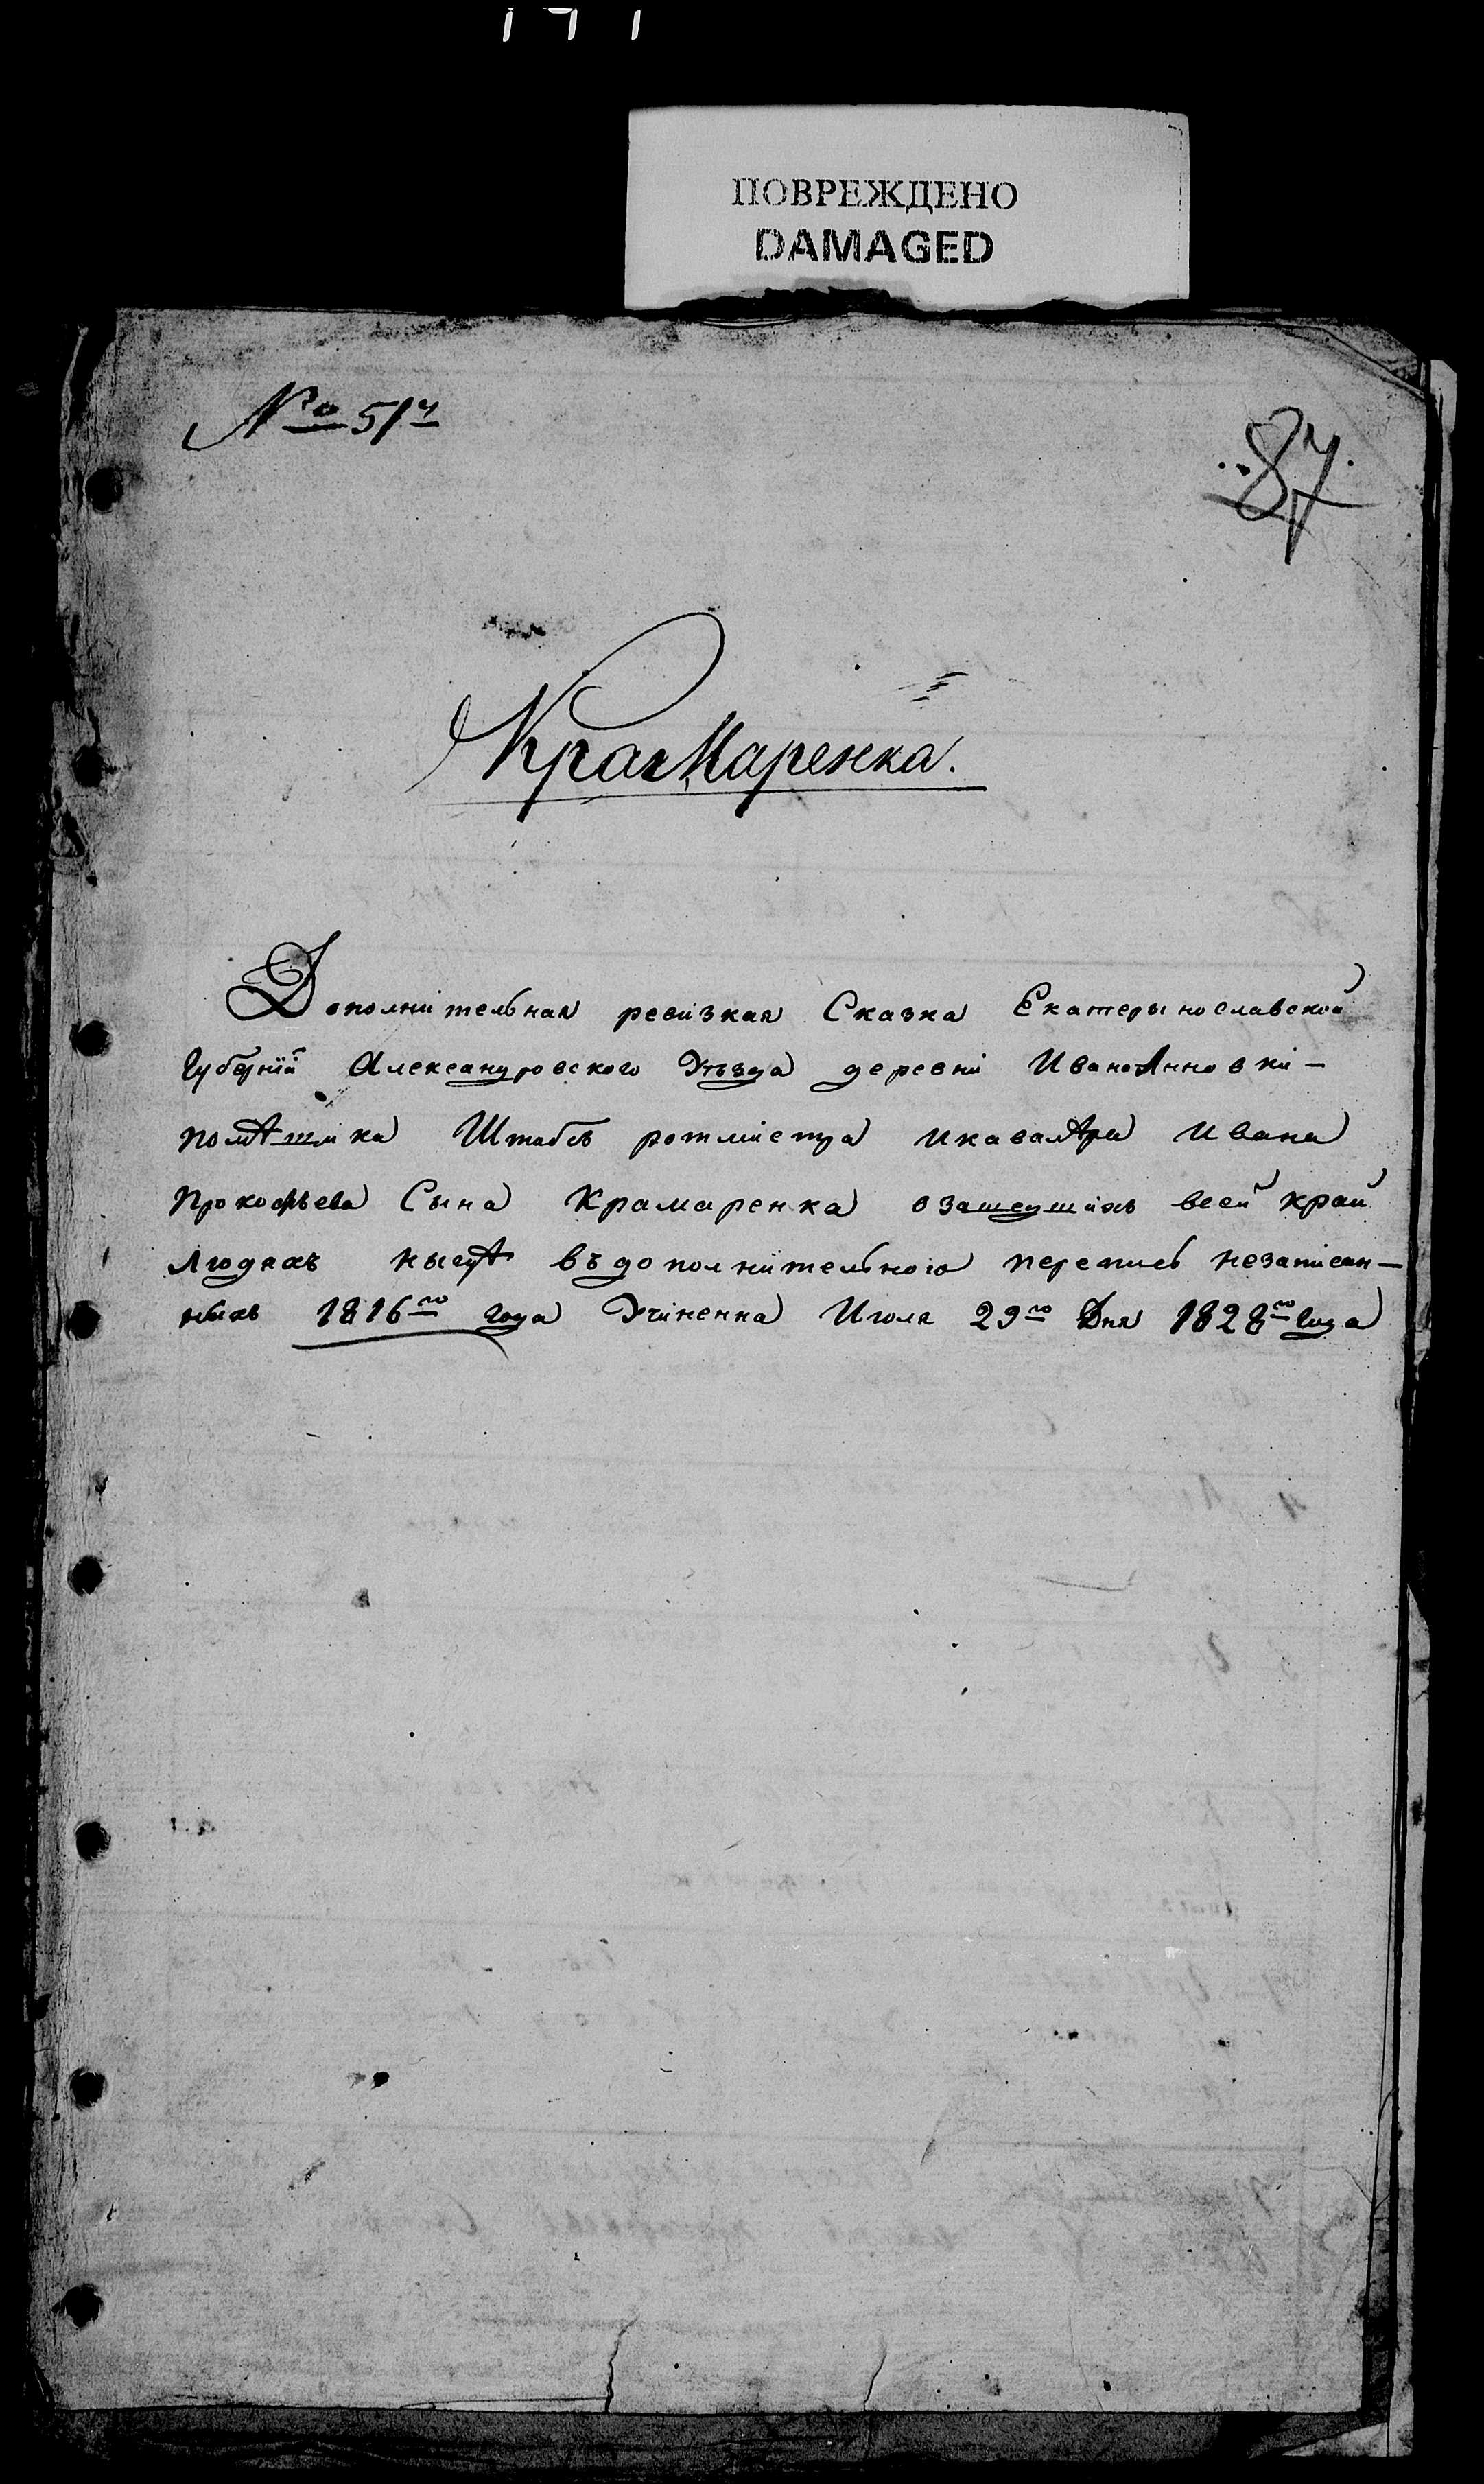 ПОВРЕЖДЕНО
DAMAGED
№ 517
87
Крамаренка.
Дополнительная ревизкая Сказка Екатерынославской
Губернїи Александровского Уѣзда деревни ИваноАнновки-
помѣшика Штабсъ ротмистра икавалѣра Ивана
Прокофьева Сына Крамаренка озашедшихъ всей край
людяхъ въдополнительною перепись незаписан-
ныхъ 1816го года Учиненна Июля 29го Дня 1828го года